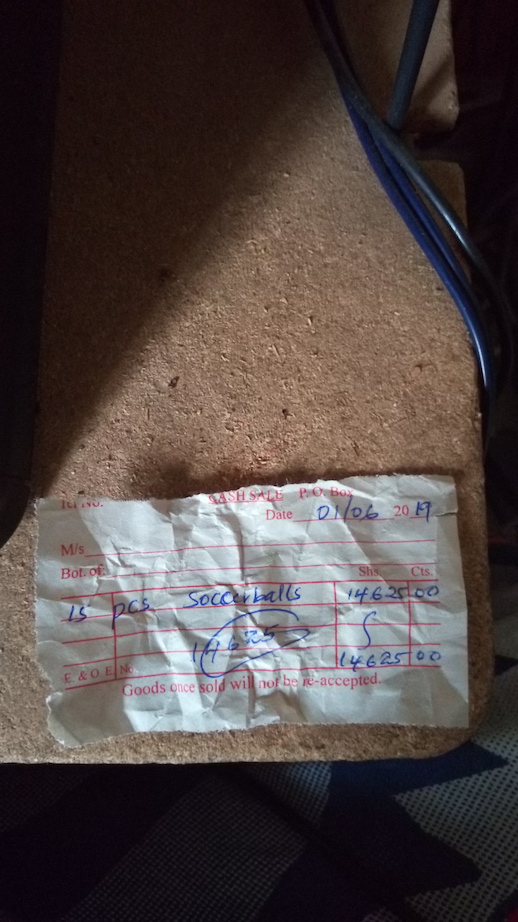 Tel No. CASH SALE P.O. Box
Date 01/06 2019
M/s
Bot. of Shs. Cts.
15 pcs Soccerballs 14625 00
14625
E. & O. E. No. 14625 00
Goods once sold will not be re-accepted.